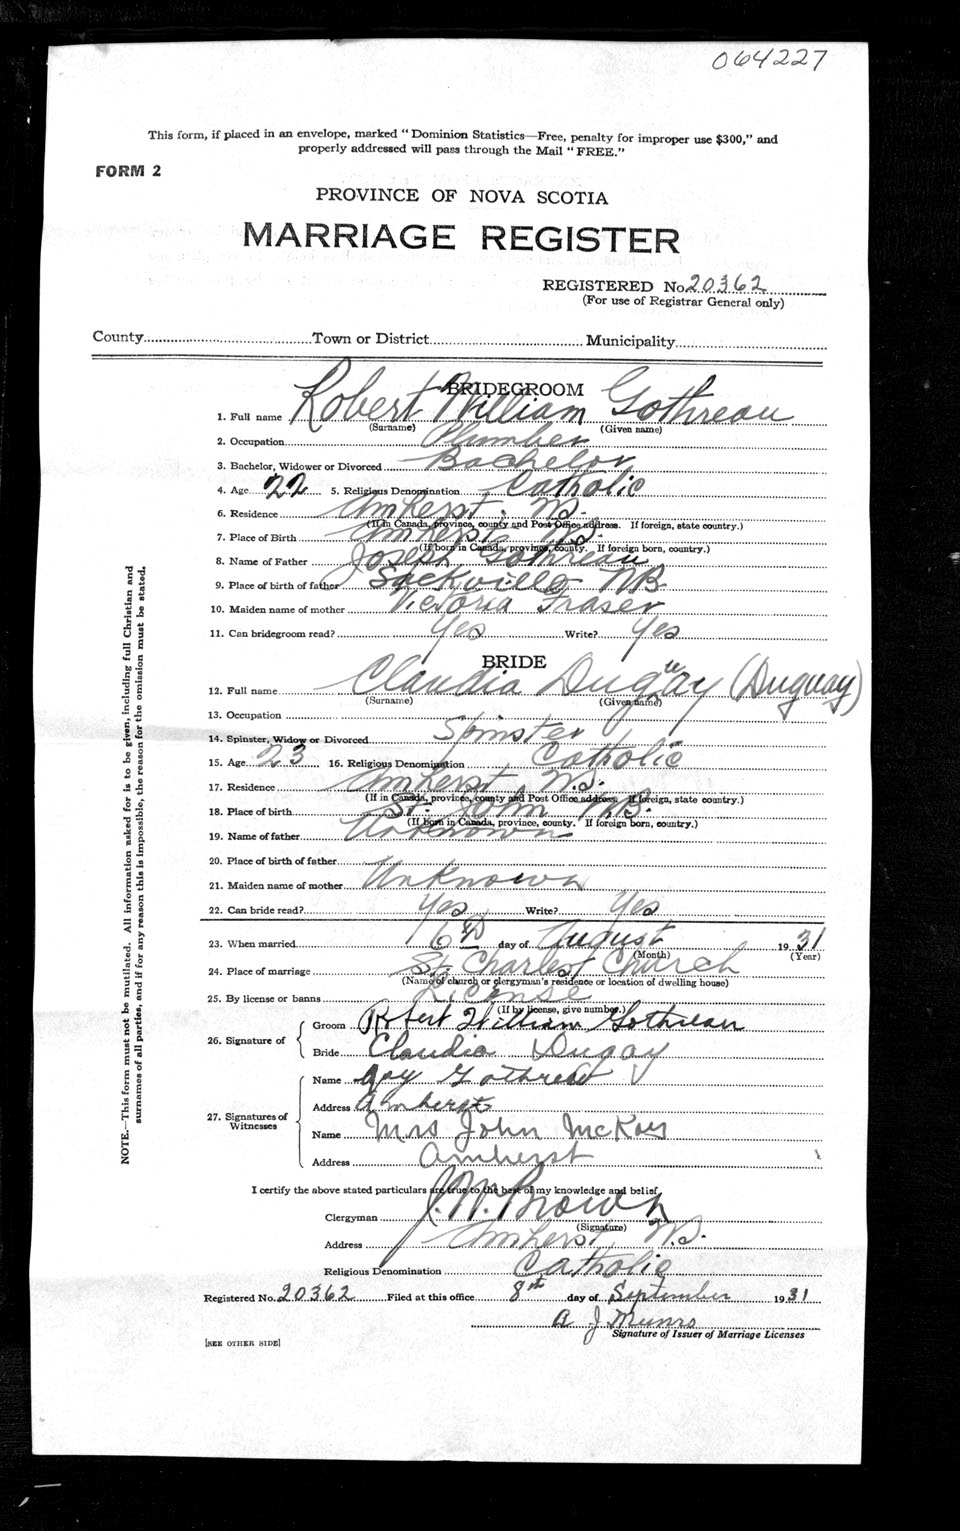 064227
This form, if placed in an envelope, marked "Dominion Statistics—Free, penalty for improper use $300," and
properly addressed will pass through the Mail "FREE."
FORM 2
PROVINCE OF NOVA SCOTIA
MARRIAGE REGISTER
REGISTERED No 20362
(For use of Registrar General only)
County Town or District Municipality
BRIDEGROOM
1. Full name Robert William Gothreau
(Surname) (Given name)
2. Occupation Plumber
3. Bachelor, Widower or Divorced Bachelor
4. Age 22 5. Religious Denomination Catholic
6. Residence Amherst, N.S.
(If in Canada, province, county and Post Office address. If foreign, state country.)
7. Place of Birth Amherst N.S.
(If born in Canada, province, county. If foreign born, country.)
8. Name of Father Joseph Gothreau
9. Place of birth of father Sackville NB
10. Maiden name of mother Victoria Fraser
11. Can bridegroom read? Yes Write? Yes
BRIDE
12. Full name Claudia Duguay (Duguay)
(Surname) (Given name)
13. Occupation
14. Spinster, Widow or Divorced Spinster
15. Age 23 16. Religious Denomination Catholic
17. Residence Amherst, N.S.
(If in Canada, province, county and Post Office address. If foreign, state country.)
18. Place of birth St. John NB.
(If born in Canada, province, county. If foreign born, country.)
19. Name of father Unknown
20. Place of birth of father
21. Maiden name of mother Unknown
22. Can bride read? Yes Write? Yes
23. When married 6th day of August 1931
(Month) (Year)
24. Place of marriage St. Charles Church
(Name of church or clergyman's residence or location of dwelling house)
25. By license or banns License
(If by license, give number.)
26. Signature of Groom Robert William Gothreau
Bride Claudia Dugay
27. Signatures of Witnesses Name Gothreau
Address Amherst
Name Mrs John McKay
Address Amherst
I certify the above stated particulars are true to the best of my knowledge and belief
Clergyman J. W. Brown
(Signature)
Address Amherst, N.S.
Religious Denomination Catholic
Registered No. 20362 Filed at this office 8th day of September 1931
A J Munro
Signature of Issuer of Marriage Licenses
[SEE OTHER SIDE]
NOTE.—This form must not be mutilated. All information asked for is to be given, including full Christian and
surnames of all parties, and if for any reason this is impossible, the reason for the omission must be stated.